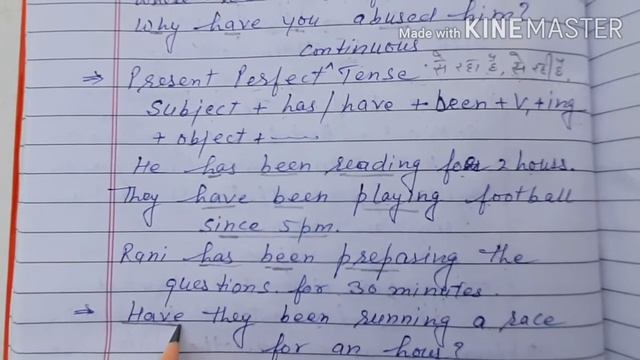 Made with KINEMASTER
Why have you abused him?
continuous
⇒ Present Perfect ^ Tense · से रहा है, से रही है,
Subject + has/have + been + V₁ + ing
+ object + ——
He has been reading for 2 hours.
They have been playing football
since 5 pm.
Rani has been preparing the
questions for 30 minutes.
⇒ Have they been running a race
for an hour?